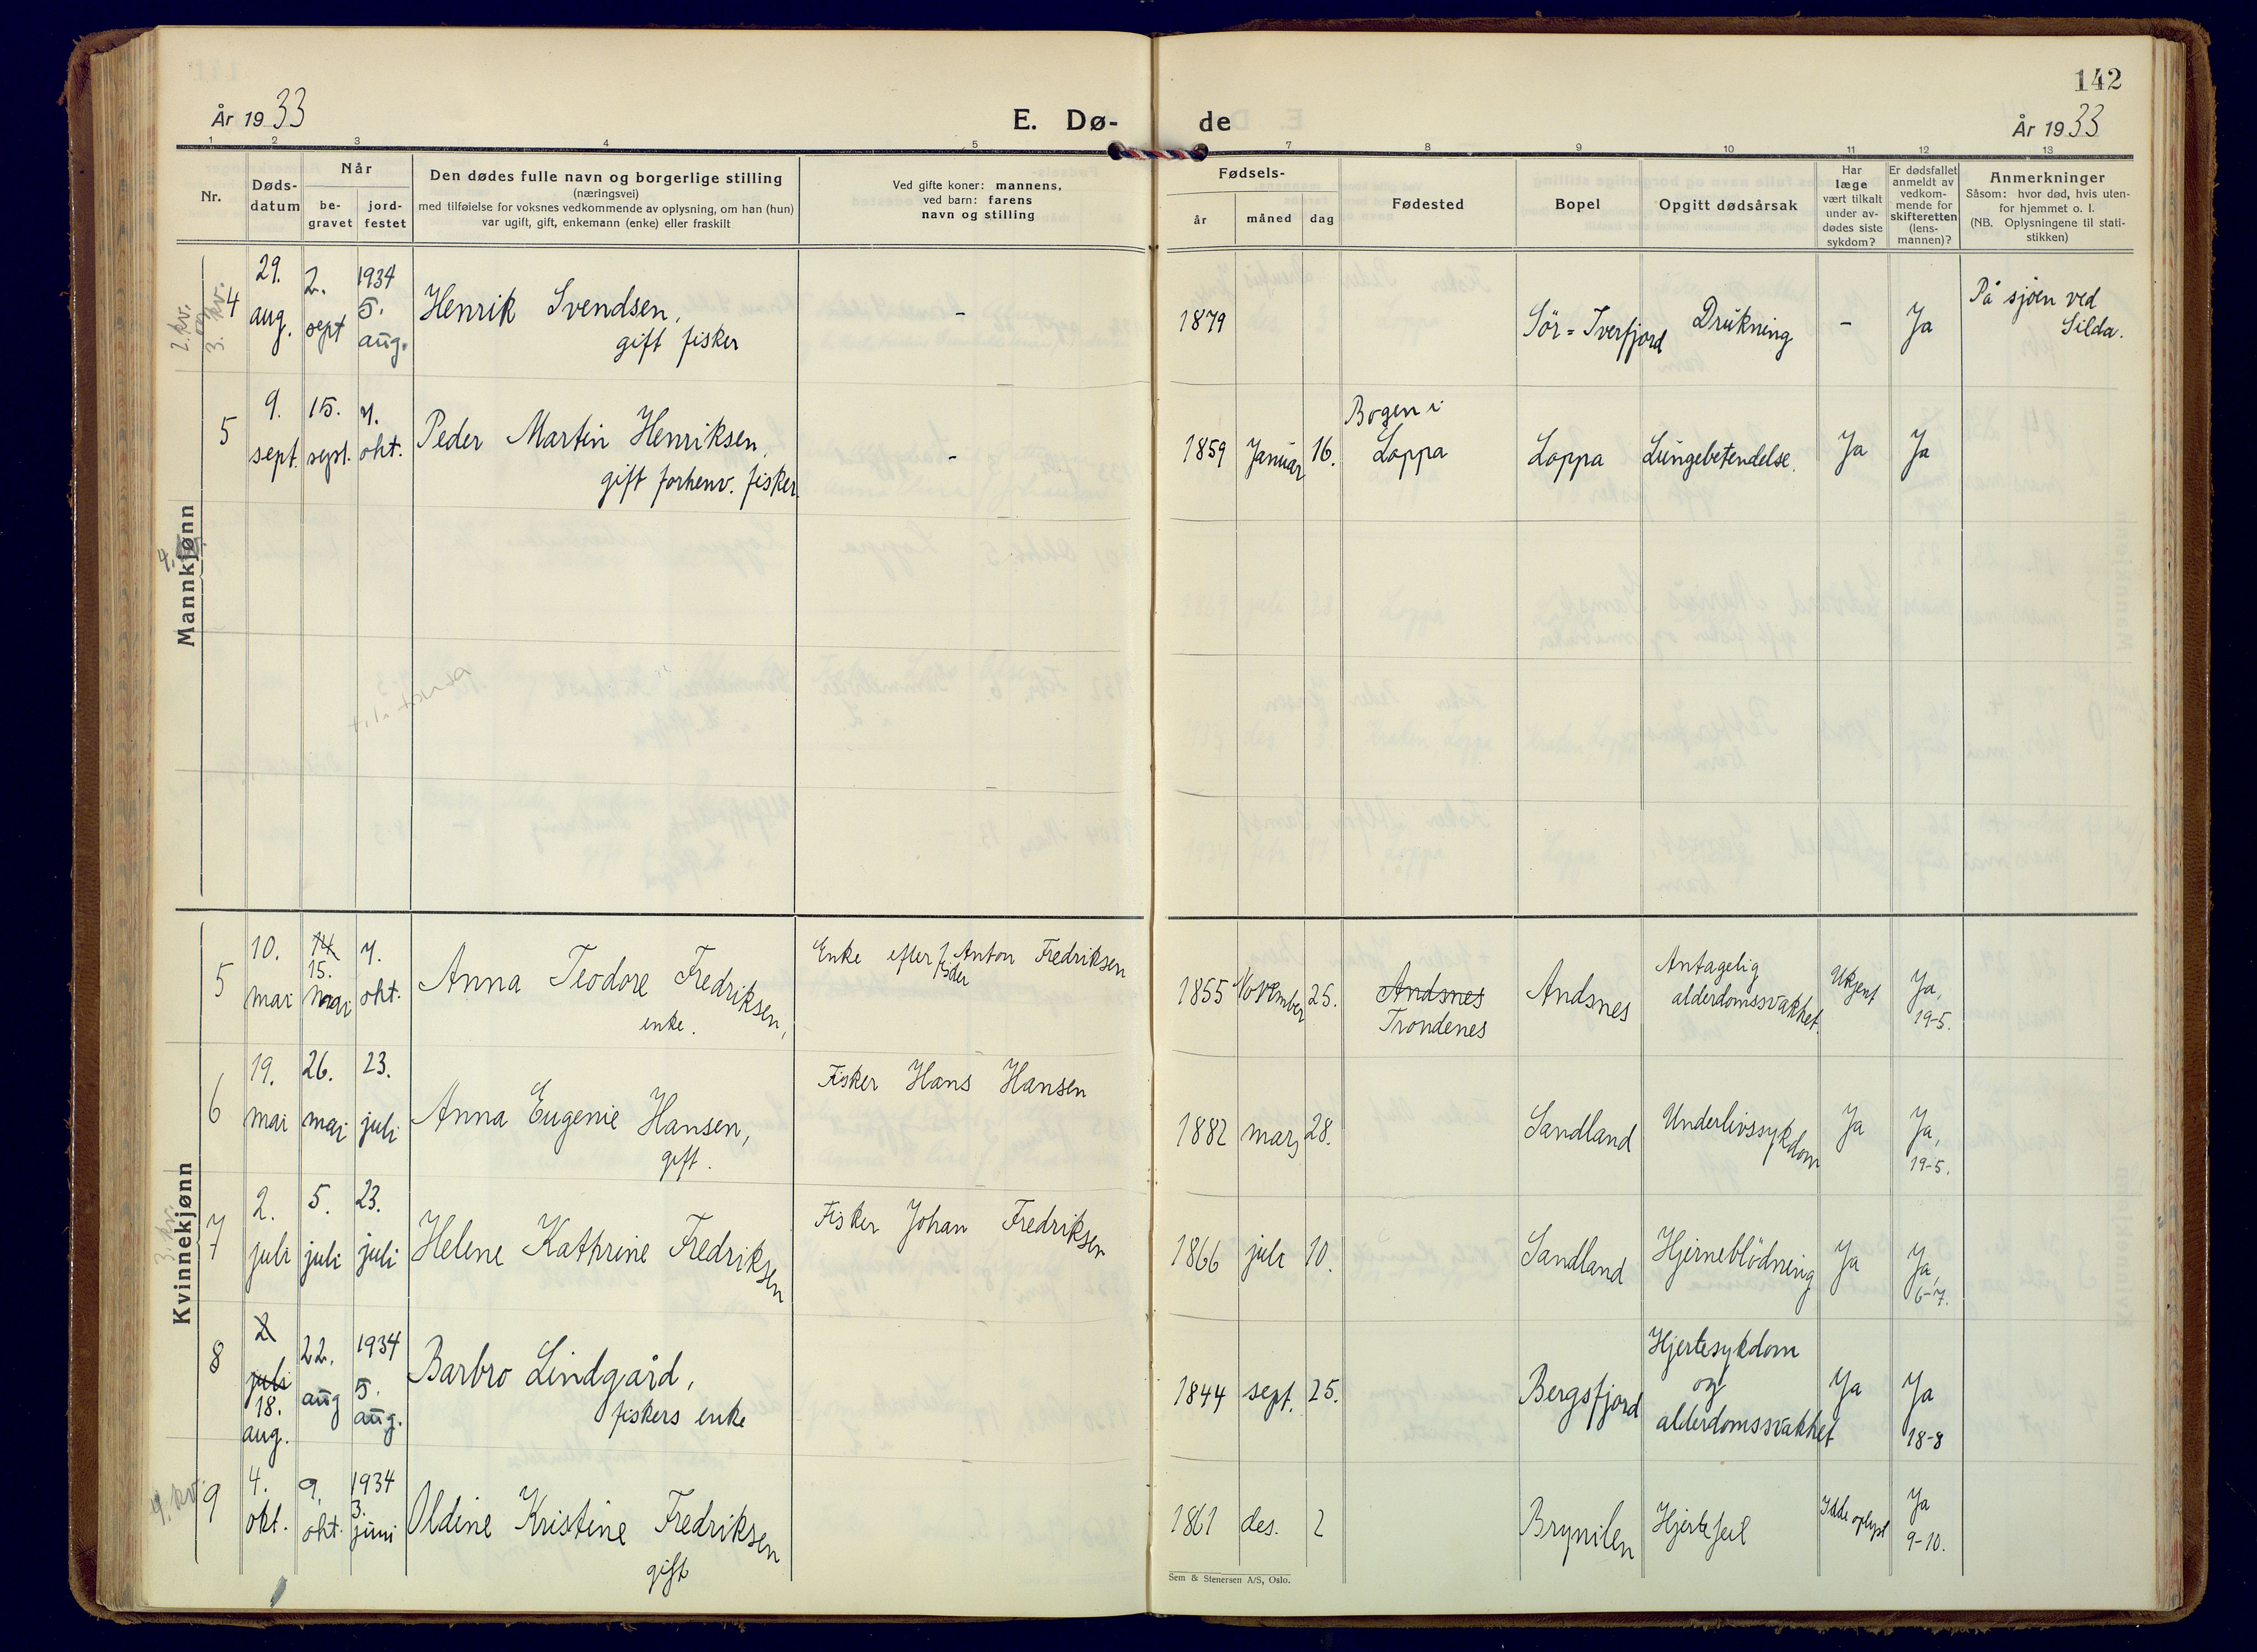 142
År 1933
E. Dø-
de
År 1933
1 2 3 4 5 7 8 9 10 11 12 13
Nr.
Døds-
datum
Når
be-
gravet
jord-
festet
Den dødes fulle navn og borgerlige stilling
(næringsvei)
med tilføielse for voksnes vedkommende av oplysning, om han (hun)
var ugift, gift, enkemann (enke) eller fraskilt
Ved gifte koner: mannens,
ved barn: farens
navn og stilling
Fødsels-
år
måned
dag
Fødested
Bopel
Opgitt dødsårsak
Har
læge
vært tilkalt
under av-
dødes siste
sykdom?
Er dødsfallet
anmeldt av
vedkom-
mende for
skifteretten
(lens-
mannen)?
Anmerkninger
Såsom: hvor død, hvis uten-
for hjemmet o. l.
(NB. Oplysningene til stati-
stikken)
Mannkjønn
2. kv.
3. kv.
4
29.
aug.
2.
sept
1934
5.
aug.
Henrik Svendsen,
gift fisker
-
1879
Sör=Tverfjord
Drukning
-
Ja
På sjøen ved
Silda.
5
9.
sept.
15.
sept.
7.
okt.
Peder Martin Henriksen,
gift forhenv. fisker
-
1859
Januar
16.
Bogen i
Loppa
Loppa
Lungebetendelse.
Ja
Ja
4. kv.
Kvinnekjønn
5
10.
mai
14
15.
mai
7.
okt.
Anna Teodore Fredriksen,
enke.
Enke efter Anton Fredriksen
fisker
1855
November
25.
Andsnes
Trondenes
Andsnes
Antagelig
alderdomssvakhet.
Ukjent
Ja,
19-5.
6
19.
mai
26.
mai
23.
juli
Anna Eugenie Hansen,
gift.
Fisker Hans Hansen
1882
mars
28.
Sandland
Underlivssykdom
Ja
Ja,
19-5.
3. kv.
7
2.
juli
5.
juli
23.
juli
Helene Kathrine Fredriksen
Fisker Johan Fredriksen
1866
juli
10.
Sandland
Hjerneblödning
Ja
Ja,
6-7.
8
2
juli
18.
aug.
22.
aug
1934
5.
aug.
Barbro Lindgård,
fiskers enke
1844
sept.
25.
Bergsfjord
Hjertesykdom
og
alderdomssvakhet
Ja
Ja
18-8
4. kv.
9
4.
okt.
9.
okt.
1934
3.
juni
Oldine Kristine Fredriksen
gift
1861
des.
2
Brynilen
Hjertefeil
Ikke oplyst
Ja
9-10.
Sem & Stenersen A/S, Oslo.